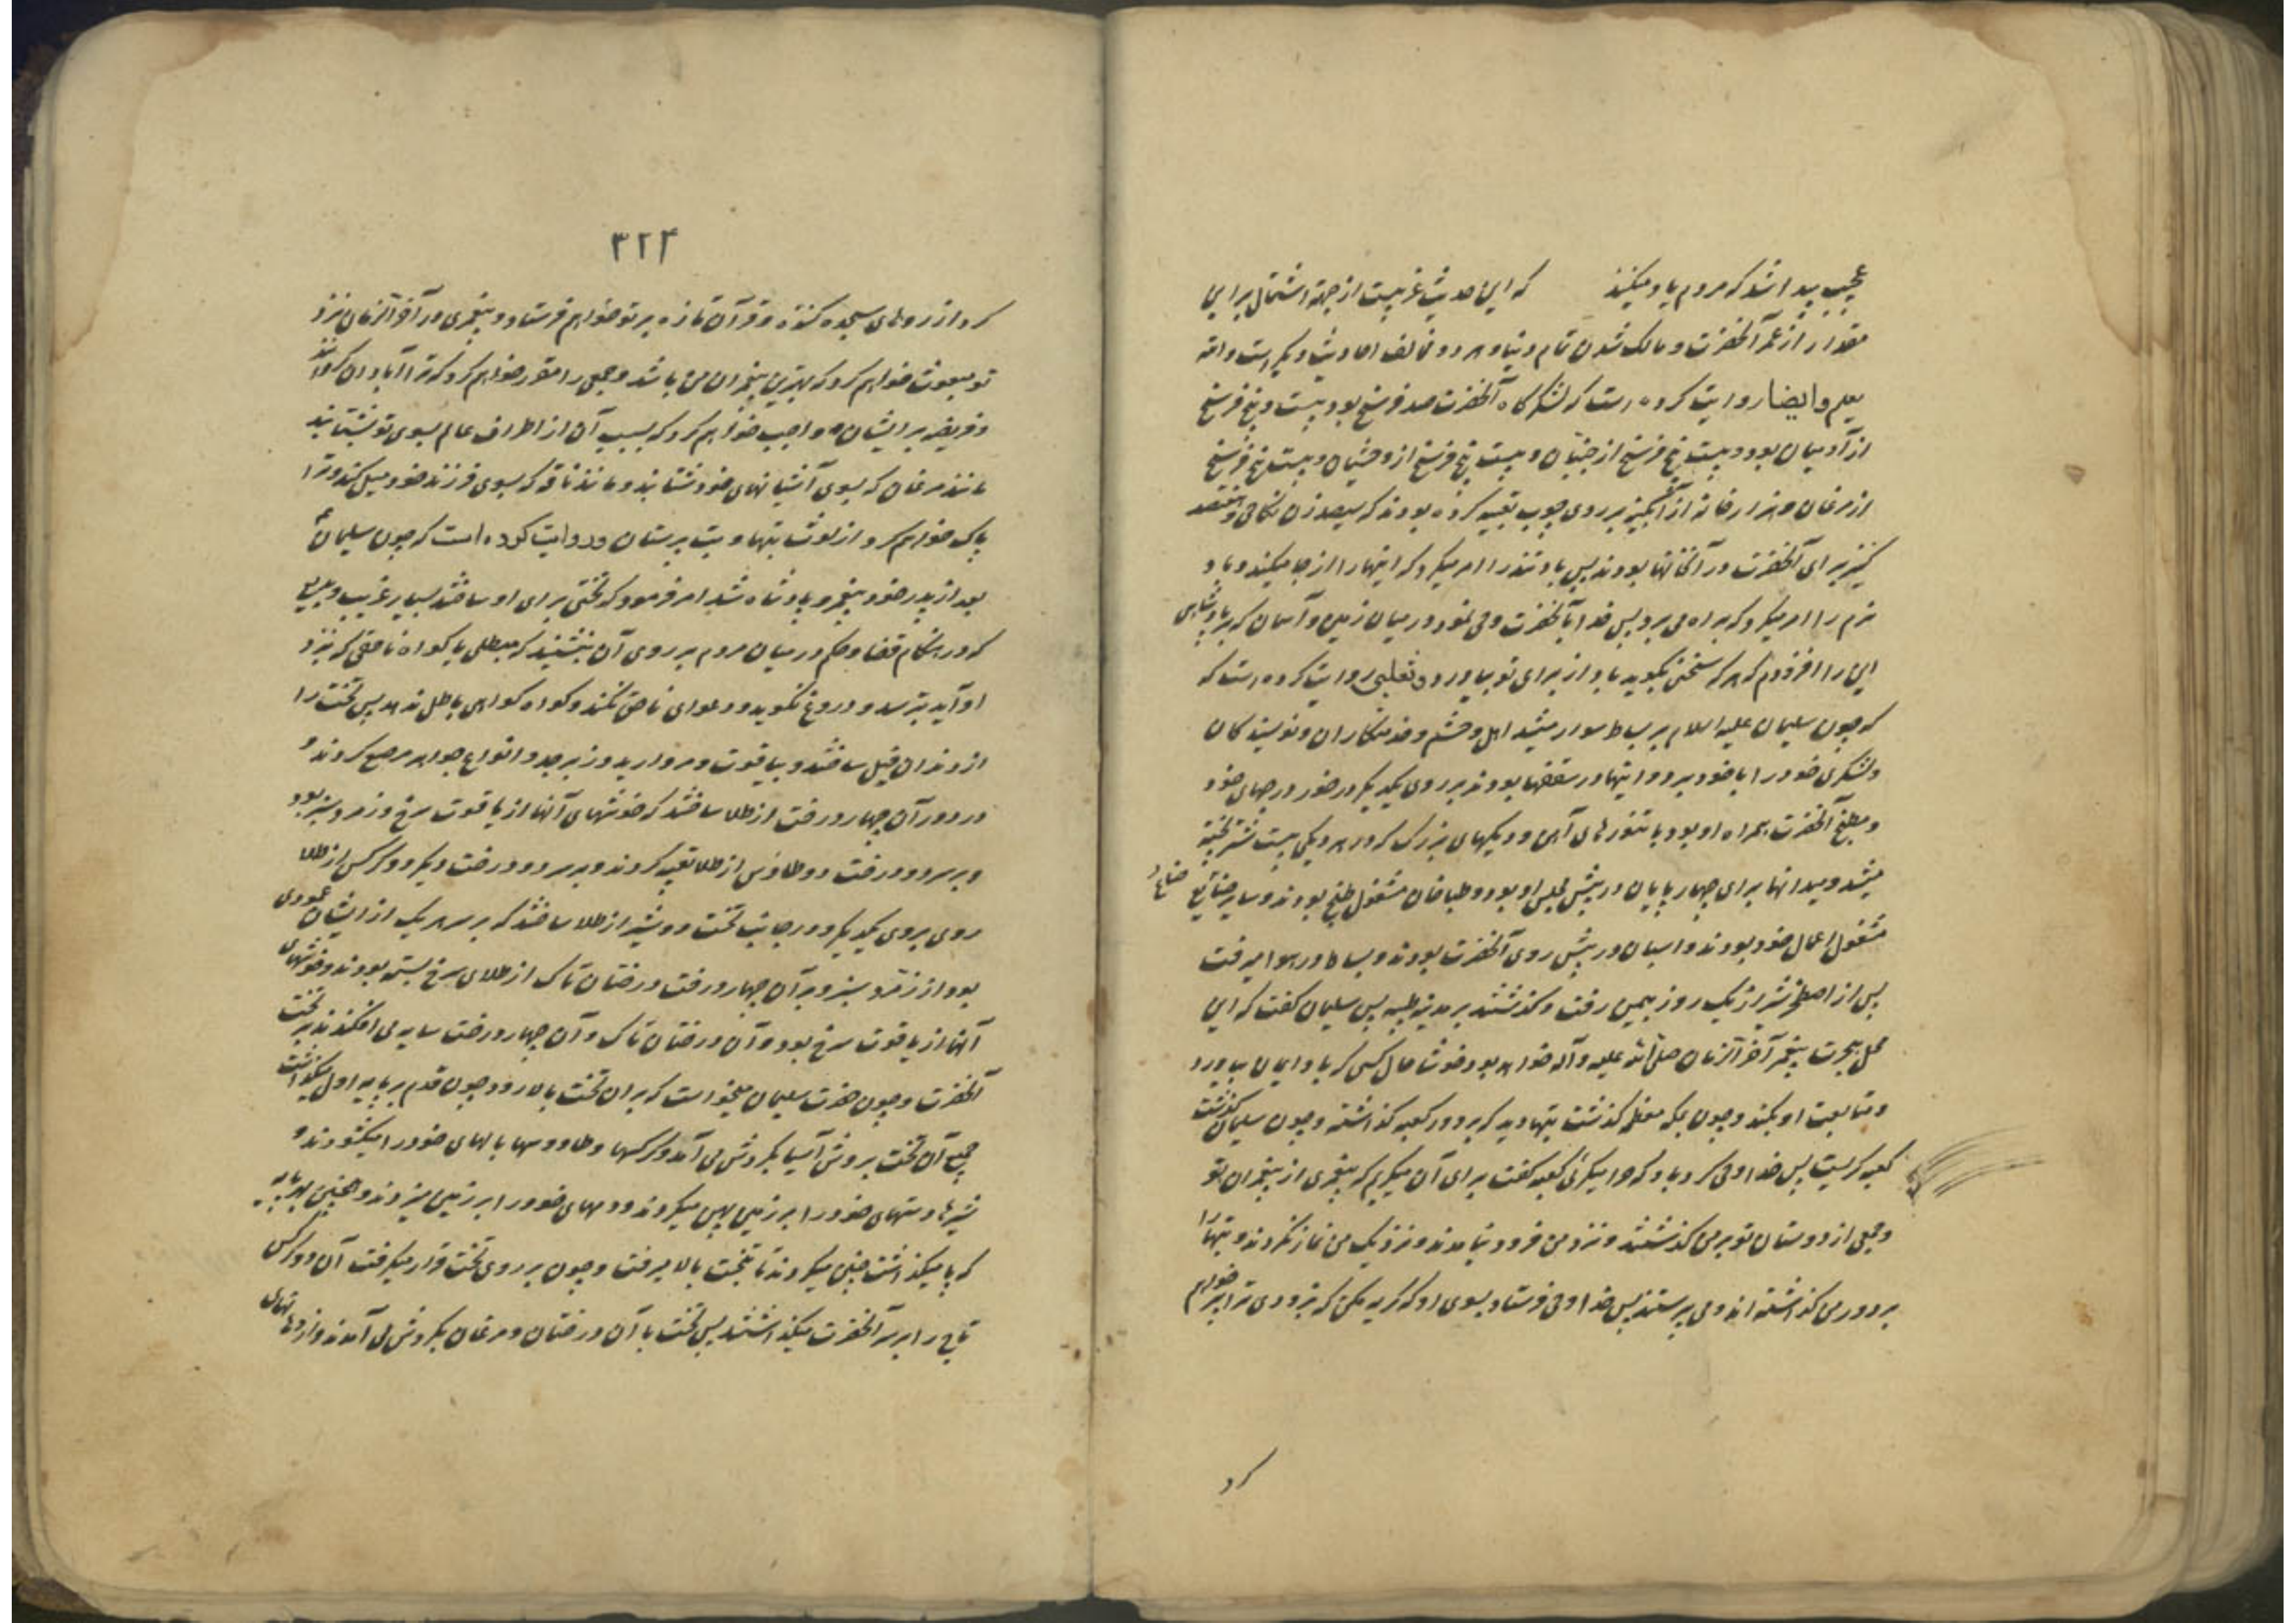 عجیب پیدا شد که مردم یاد میکنند که این حدیث غریبست از جهة اشتمال بر این
مقدار از عمر آنحضرت و مالک شدن تمام دنیا و هر دو مخالف احادیث دیگر است والله
یعلم وایضا روایت کرده است که لشکرگاه آنحضرت صد فرسخ بود بیست و پنج فرسخ
از آدمیان بود و بیست پنج فرسخ از جنیان و بیست پنج فرسخ از وحشیان و بیست پنج فرسخ
از مرغان و هزار خانه از آبگینه بر روی چوب تعبیه کرده بودند که سیصد زن نکاحی و هفتصد
کنیز برای آنحضرت در آنخانها بودند پس باد تند را امر میکرد که اینها را از جا میکند و باد
نرم را امر میکرد که براه می برد پس خدا بآنحضرت وحی نمود در میان زمین و آسمان که بر پادشاهی
این را افزودم که هر که سخنی بگوید باد از برای تو بیاورد و ثعلبی روایت کرده است که
که چون سلیمان علیه السلام بر بساط سوار میشد اهل و حشم و خدمتکاران و نویسندکان
ولشکری خود را با خود میبرد و اینها در سقفها بودند بر روی یکدیگر در خور درجهای خود
و مطبخ آنحضرت همراه او بود با تنورهای آهن و دیکهای بزرک که در هر دیکی بیست شتر پخته
میشد و میدانها برای چهار پایان در پیش مجلس او بود و طباخان مشغول طبخ بودند و سایر صنایع
مشغول اعمال خود بودند و اسبان در پیش روی آنحضرت بودند و بساط در هوا میرفت
پس از اصطخر شیراز یک روز بیمن رفت و گذشتند بر مدینه طیبه پس سلیمان گفت که این
محل هجرت پیغمبر آخر الزمان صلی الله علیه و آله خواهد بود خوشا حال کسی که باو ایمان بیاورد
و متابعت او بکند و چون بمکه معظمه گذشت بتها دید که بر دور کعبه گذاشته و چون سلیمان گذشت
کعبه گریست پس خدا وحی کرد باو که چرا میگرئی کعبه گفت برای آن میگریم که پیغمبری از پیغمبران تو
و جمعی از دوستان تو بر من گذشتند و نزد من فرود نیامدند و نزدیک من نماز نکردند و بتها را
بر دور من گذاشته اند و می پرستند پس خدا وحی فرستاد بسوی او که گریه مکن که بزودی ترا پر خواهم
کرد
۳۲۴
کرد از روهای سجده کننده و قرآن تازه بر تو خواهم فرستاد و پیغمبری در آخر الزمان نزد
تو مبعوث خواهم کرد که بهترین پیغمبران من باشد و جمعی را مقرر خواهم کرد که ترا آبادان گردانند
و فریضه بر ایشان واجب خواهم کرد که بسبب آن از اطراف عالم بسوی تو بشتابند
مانند مرغان که بسوی آشیانهای خود شتابند و مانند ناقه که بسوی فرزند خود میل کند و ترا
پاک خواهم کرد از لوث بتها و بت پرستان و روایت کرده است که چون سلیمان ع
بعد از پدر خود پیغمبر و پادشاه شد امر فرمود که تختی برای او ساختند بسیار غریب و بدیع
که در هنگام قضا و حکم در میان مردم بر روی آن بنشیند که مبطلی یا گواه ناحقی که نزد
او آید بترسد و دروغ نگوید و دعوای ناحق نکند و گواه گواهی باطل ندهد پس تخت را
از دندان فیل ساختند و بیاقوت و مروارید و زبرجد و انواع جواهر مرصع کردند و
در دور آن چهار درخت از طلا ساختند که خوشهای آنها از یاقوت سرخ و زمرد سبز بود
و بر سر دو درخت دو طاوس از طلا تعبیه کردند و بر سر دو درخت دیگر دو کرکس از طلا
روی بروی یکدیگر و در جانب تخت دو شیر از طلا ساختند که بر سر هر یک از ایشان عمودی
بود از زمرد سبز و بر آن چهار درخت درختان تاک از طلای سرخ بسته بودند و خوشهای
آنها از یاقوت سرخ بود و آن درختان تاک و آن چهار درخت سایه می افکندند بر تخت
آنحضرت و چون حضرت سلیمان میخواست که بر آن تخت بالا رود چون قدم بر پایه اول میگذاشت
جمیع آن تخت بروش آسیا بگردش می آمد و کرکسها و طاووسها بالهای خود را میکشودند و
شیرها دستهای خود را بر زمین پهن میکردند و دمهای خود را بر زمین میزدند و همچنین بهر پایه
که پا میگذاشت چنین میکردند تا بتخت بالا میرفت و چون بر روی تخت قرار میگرفت آن دو کرکس
تاج را بر سر آنحضرت میگذاشتند پس تخت با آن درختان و مرغان بگردش می آمدند و از دهانهای